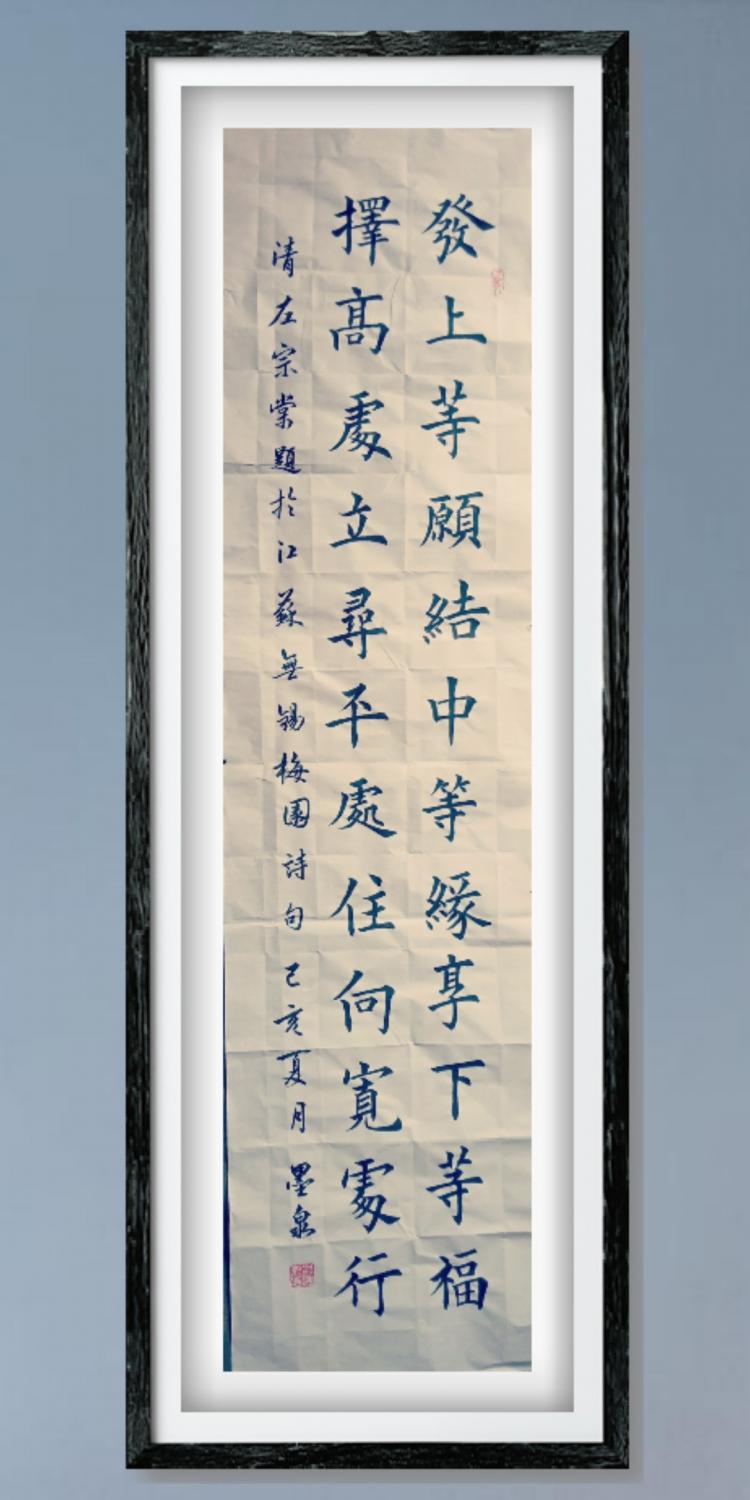 發上等願結中等緣享下等福
擇高處立尋平處住向寬處行
清左宗棠題於江蘇無錫梅園詩句己亥夏月墨泉